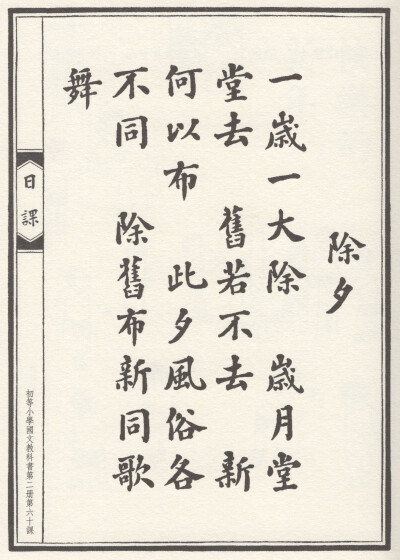 除夕
一歲一大除　歲月堂
堂去　舊若不去　新
何以布　此夕風俗各
不同　除舊布新同歌
舞
日課
初等小學國文教科書第二册第六十課